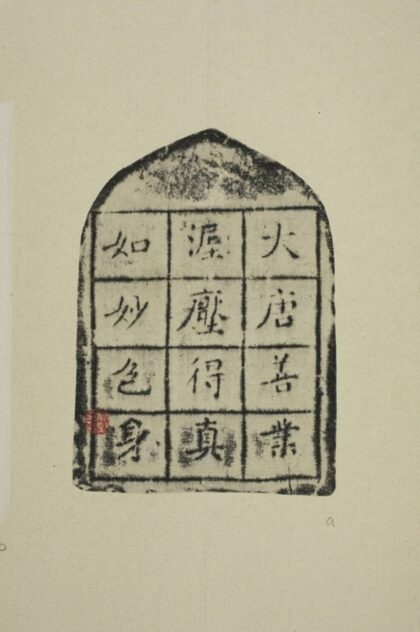 大唐善業
泥壓得真
如妙色身
a